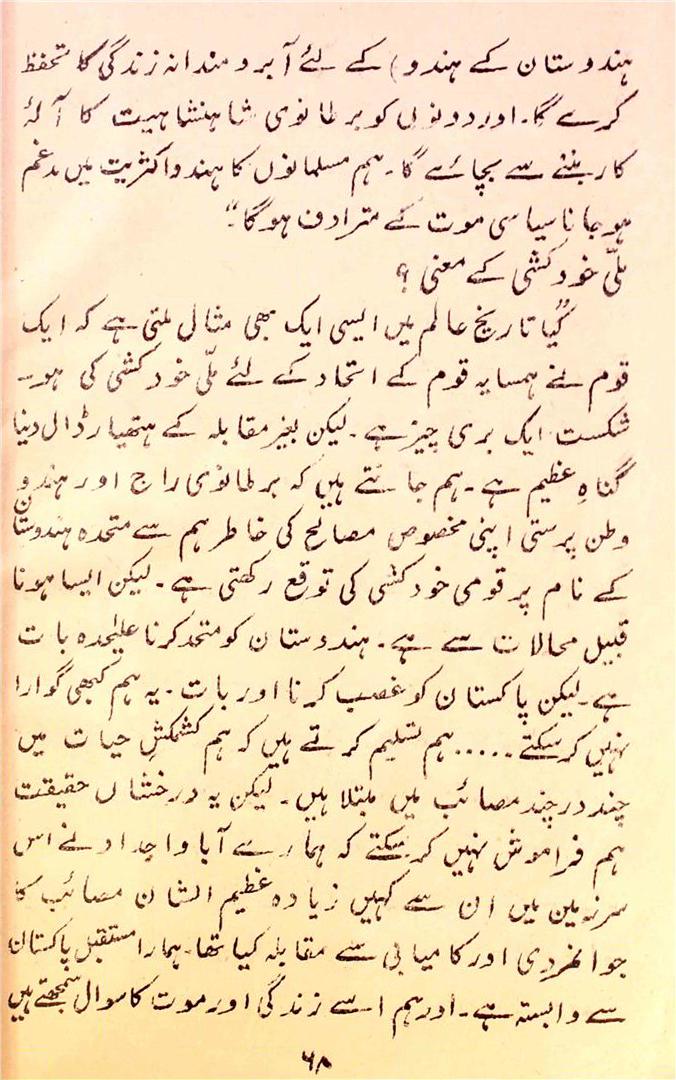 ہندوستان کے ہندو) کے لئے آبرومندانہ زندگی کا تحفظ
کرے گا۔ اور دونوں کو برطانوی شاہنشاہیت کا آلۂ
کار بننے سے بچائے گا۔ ہم مسلمانوں کا ہندو اکثریت میں مدغم
ہوجانا سیاسی موت کے مترادف ہوگا۔"
ملّی خودکشی کے معنی؟
"کیا تاریخ عالم میں ایسی ایک بھی مثال ملتی ہے کہ ایک
قوم نے ہمسایہ قوم کے اتحاد کے لئے ملّی خودکشی کی ہو۔
شکست ایک بری چیز ہے۔ لیکن بغیر مقابلہ کے ہتھیار ڈال دینا
گناہِ عظیم ہے۔ ہم جانتے ہیں کہ برطانوی راج اور ہندو
وطن پرستی اپنی مخصوص مصالح کی خاطر ہم سے متحدہ ہندوستان
کے نام پر قومی خودکشی کی توقع رکھتی ہے۔ لیکن ایسا ہونا
قبیل محالات سے ہے۔ ہندوستان کو متحد کرنا علیٰحدہ بات
ہے۔ لیکن پاکستان کو غصب کرنا اور بات۔ یہ ہم کبھی گوارا
نہیں کرسکتے ..... ہم تسلیم کرتے ہیں کہ ہم کشمکشِ حیات میں
چند در چند مصائب میں مبتلا ہیں۔ لیکن یہ درخشاں حقیقت
ہم فراموش نہیں کرسکتے کہ ہمارے آباواجداد نے اس
سرزمین میں ان سے کہیں زیادہ عظیم الشان مصائب کا
جوانمردی اور کامیابی سے مقابلہ کیا تھا۔ ہمارا مستقبل پاکستان
سے وابستہ ہے۔ اور ہم اسے زندگی اور موت کا سوال سمجھتے ہیں
۶۸